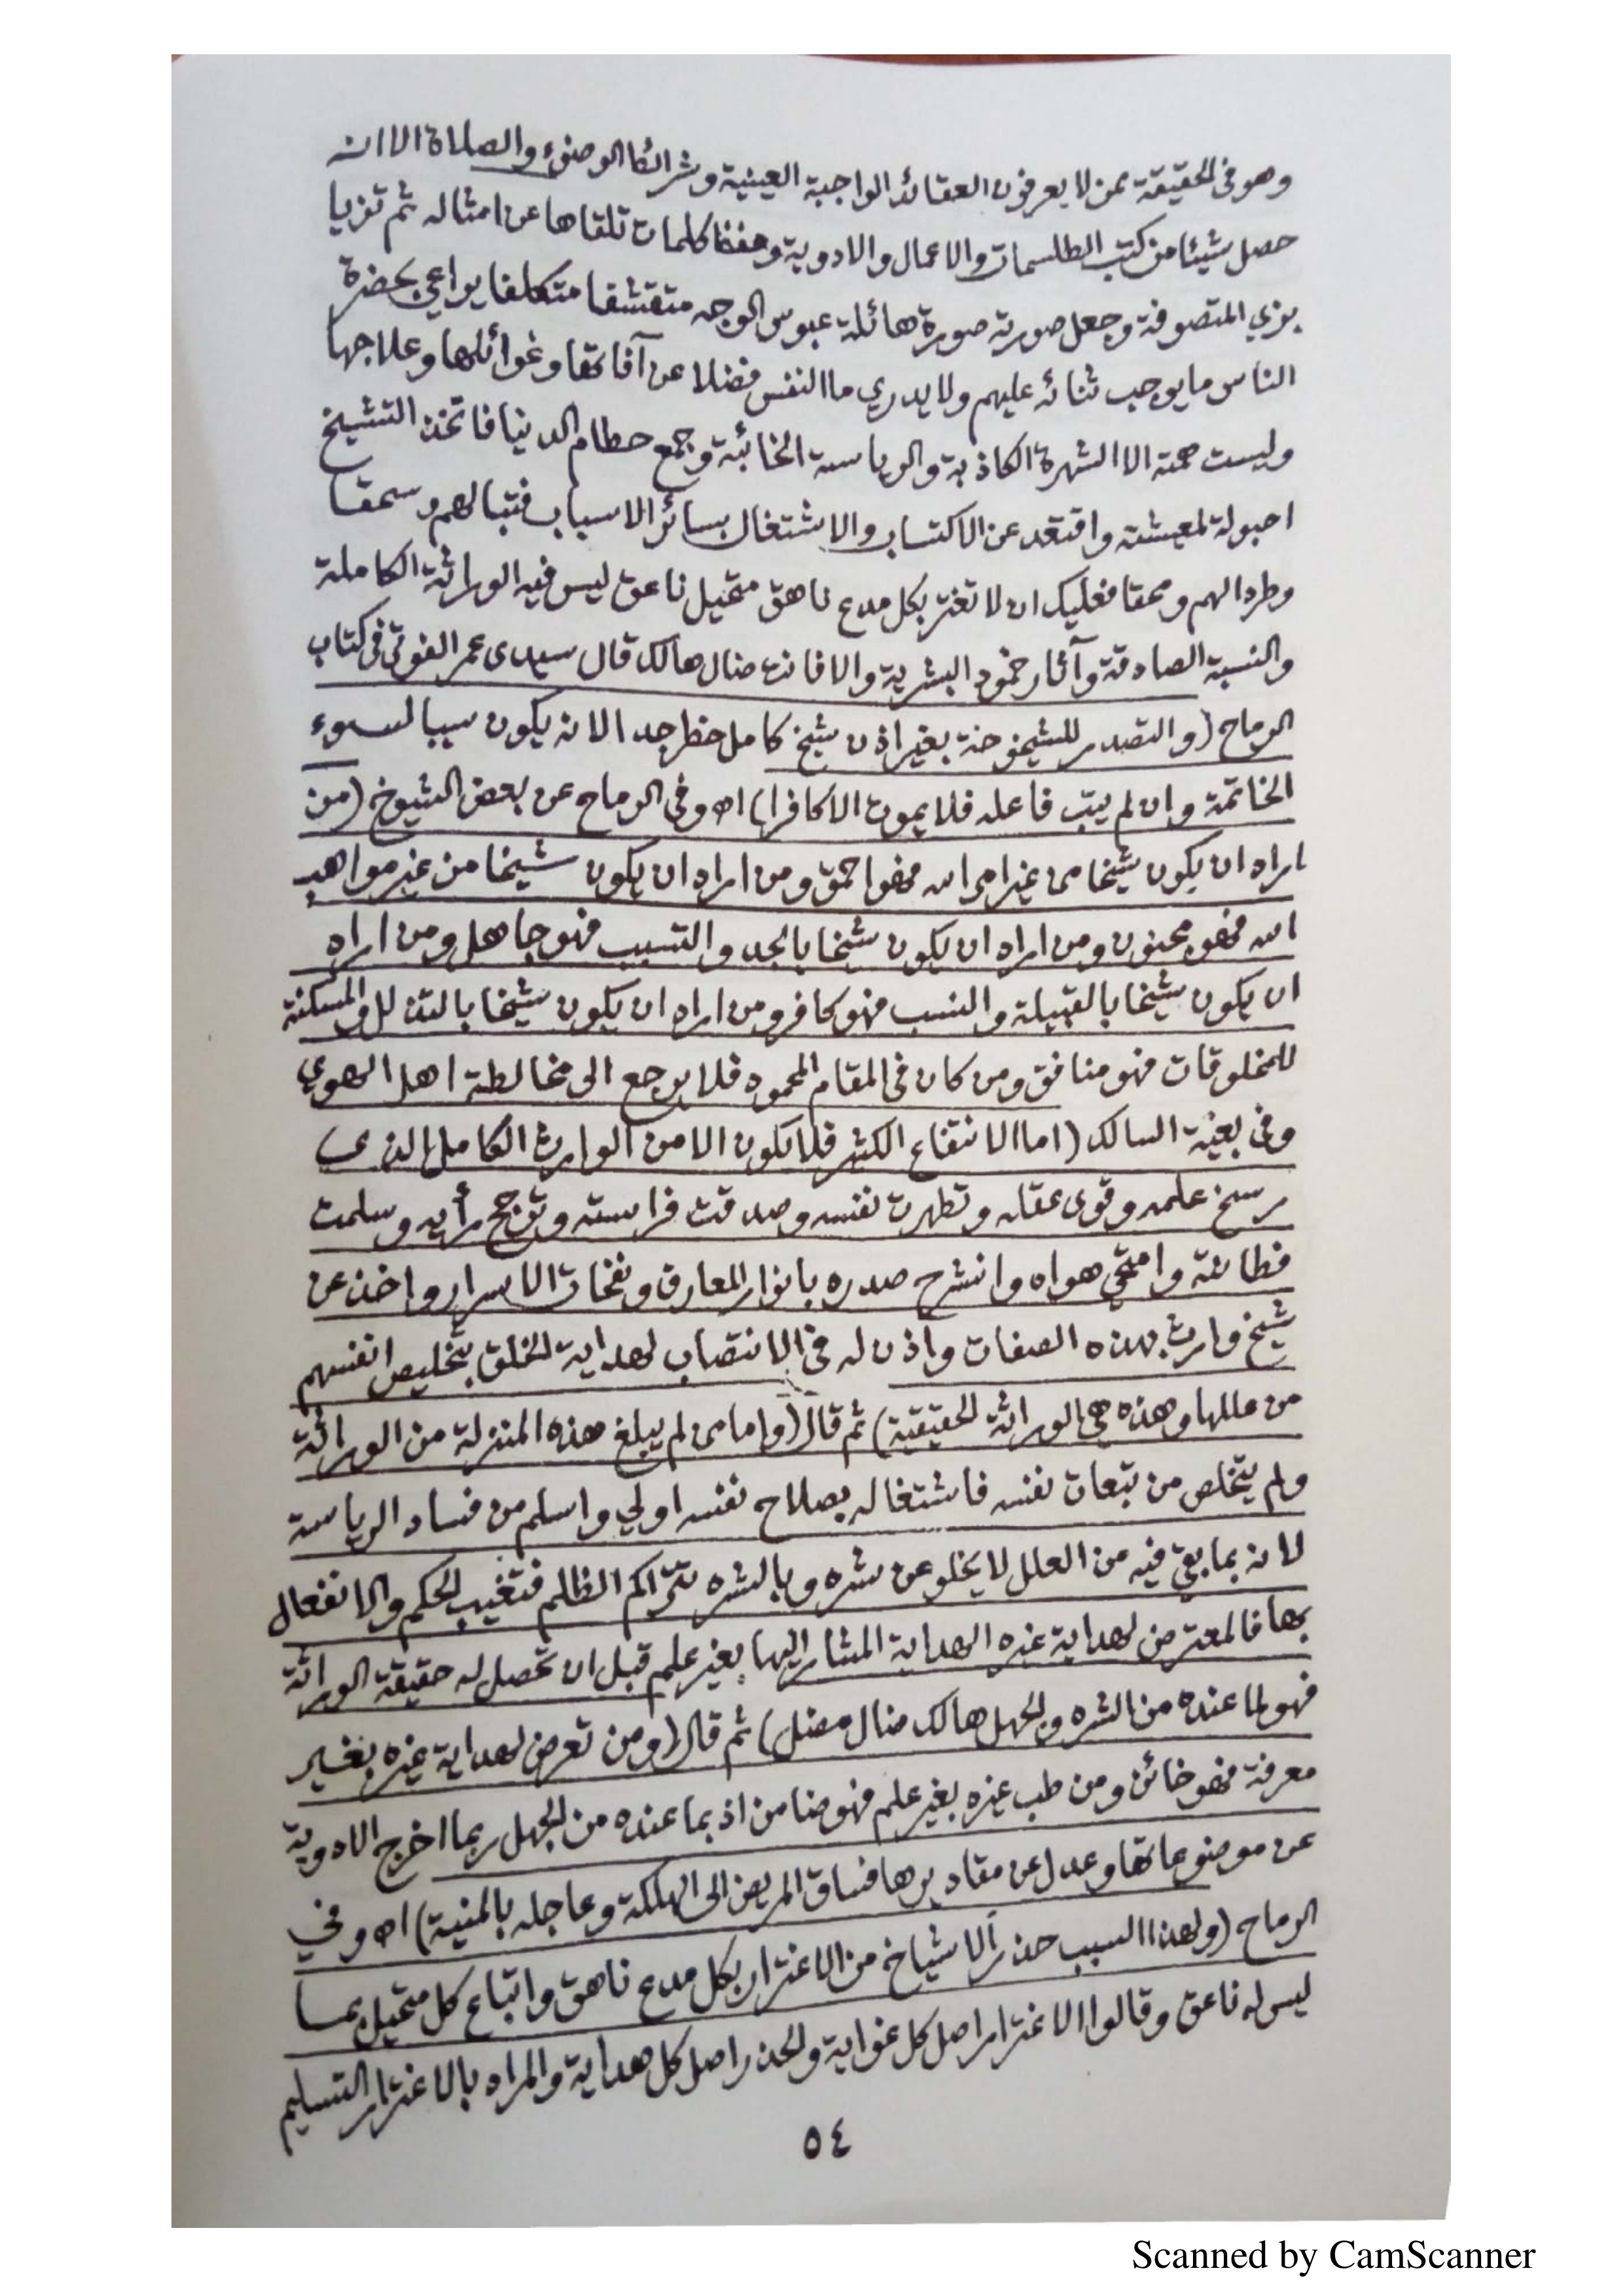 وهو في الحقيقة ممن لا يعرفون العقائد الواجبة العينية وشرائط الوضوء والصلاة الا انه
حصل شيئا من كتب الطلسمات والاعمال والادوية وحفظ كلمات تلقاها عن امثاله ثم تزيا
بزي المتصوفة وجعل صورته صورة هائلة عبوس الوجه متقشفا متكلفا يراعي بحضرة
الناس ما يوجب ثنائه عليهم ولا يدري ما النفس فضلا عن آفاتها وغوائلها وعلاجها
وليست همته الا الشهرة الكاذبة والرياسة الخائبة وجمع حطام الدنيا فاتخذ التشيخ
احبولة لمعيشته واقتعد عن الاكتساب والاشتغال بسائر الاسباب فتبا لهم وسحقا
وطردا لهم ومحقا فعليك ان لا تغتر بكل مدع ناهق متحيل ناعق ليس فيه الوراثة الكاملة
والنسبة الصادقة وآثار خمود البشرية والا فانت ضال هالك قال سيدى عمر الفوتي في كتاب
الرماح (والتصدر للشيخوخة بغير اذن شيخ كامل خطر جدا لانه يكون سببا لسوء
الخاتمة وان لم يتب فاعله فلا يموت الا كافرا) اه وفي الرماح عن بعض الشيوخ (من
اراد ان يكون شيخا من غير امر الله فهو احمق ومن اراد ان يكون شيخا من غير مواهب
الله فهو مجنون ومن اراد ان يكون شيخا بالجد والتسبب فهو جاهل ومن اراد
ان يكون شيخا بالقبيلة والنسب فهو كافر ومن اراد ان يكون شيخا بالتذلل والمسكنة
للمخلوقات فهو منافق ومن كان في المقام المحمود فلا يرجع الى مخالطة اهل الهوي
وفي بغية السالك (اما الانتفاع الكثير فلا يكون الا من الوارث الكامل الذى
رسخ علمه وقوى عقله وتطهرت نفسه وصدقت فراسته وترجح رأيه وسلمت
فطانته وامتحي هواه وانشرح صدره بانوار المعارف ونفحات الاسرار واخذ عن
شيخ وارث بهذه الصفات واذن له في الانتصاب لهداية الخلق بتخليص انفسهم
من عللها وهذه هي الوراثة الحقيقية) ثم قال (واما من لم يبلغ هذه المنزلة من الوراثة
ولم يتخلص من تبعات نفسه فاشتغاله بصلاح نفسه اولي واسلم من فساد الرياسة
لانه بما بقي فيه من العلل لا يخلو عن شره وبالشره تتراكم الظلم فتغيب الحكم والانفعال
بها فالمعترض لهداية غيره الهداية المشار اليها بغير علم قبل ان تحصل له حقيقة الوراثة
فهو لما عنده من الشره والجهل هالك ضال مضل) ثم قال (ومن تعرض لهداية غيره بغير
معرفة فهو خائن ومن طب غيره بغير علم فهو ضامن اذ بما عنده من الجهل ربما اخرج الادوية
عن موضوعاتها وعدل عن مقاديرها فساق المريض الى الهلكة وعاجله بالمنية) اه وفي
الرماح (ولهذا السبب حذر الاشياخ من الاغترار بكل مدع ناهق واتباع كل متحيل بما
ليس له ناعق وقالوا الاغترار اصل كل غواية والحذر اصل كل هداية والمراد بالاغترار التسليم
٥٤
Scanned by CamScanner